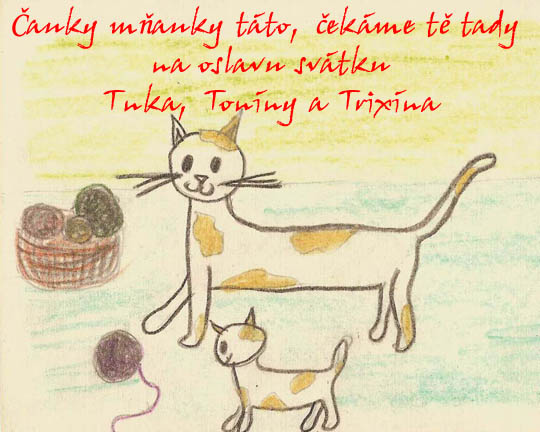 Čanky mňanky táto, čekáme tě tady
na oslavu svátku
Tuka, Toníny a Trixína